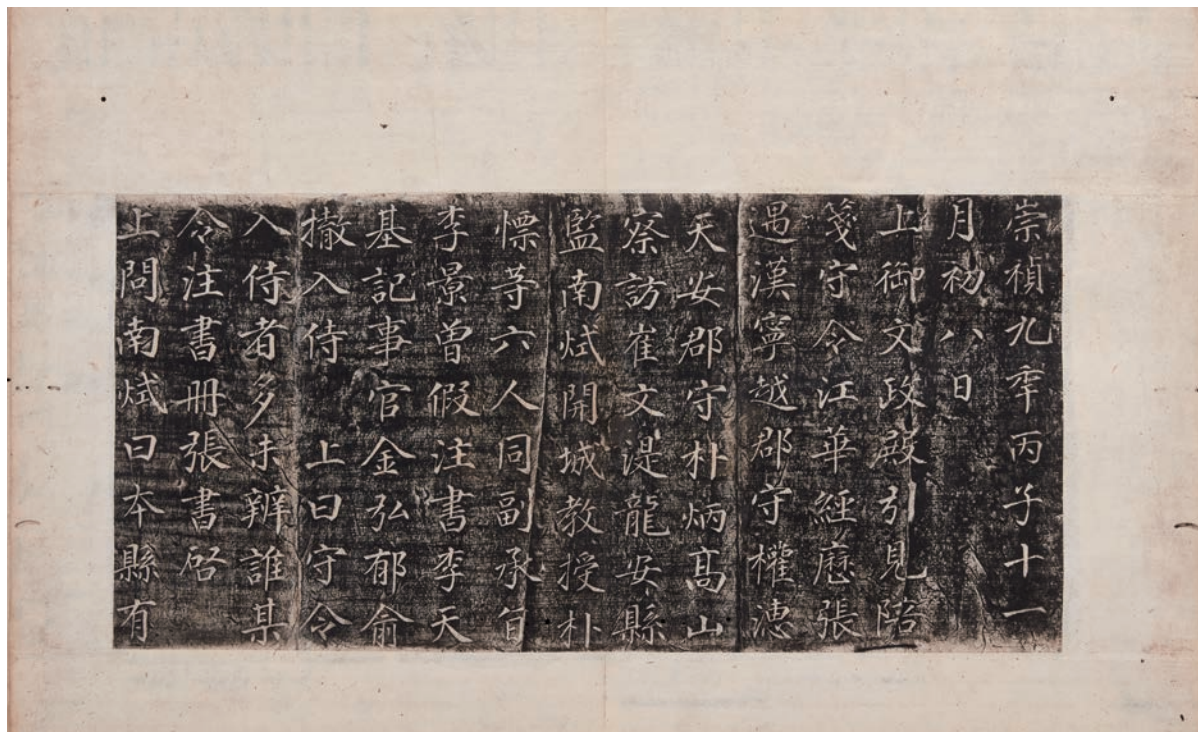 崇禎九年丙子十一
月初八日
上御文政殿引見陪
箋守令江華經歷張
遇漢寧越郡守權
天安郡守朴炳高山
察訪崔文湜龍安縣
監南烒開城教授朴
慓等六人同副承旨
李景曾假注書李天
基記事官金弘郁俞
㯙入侍 上曰守令
入侍者多未辨誰某
令注書冊張書啓
上問南烒曰本縣有